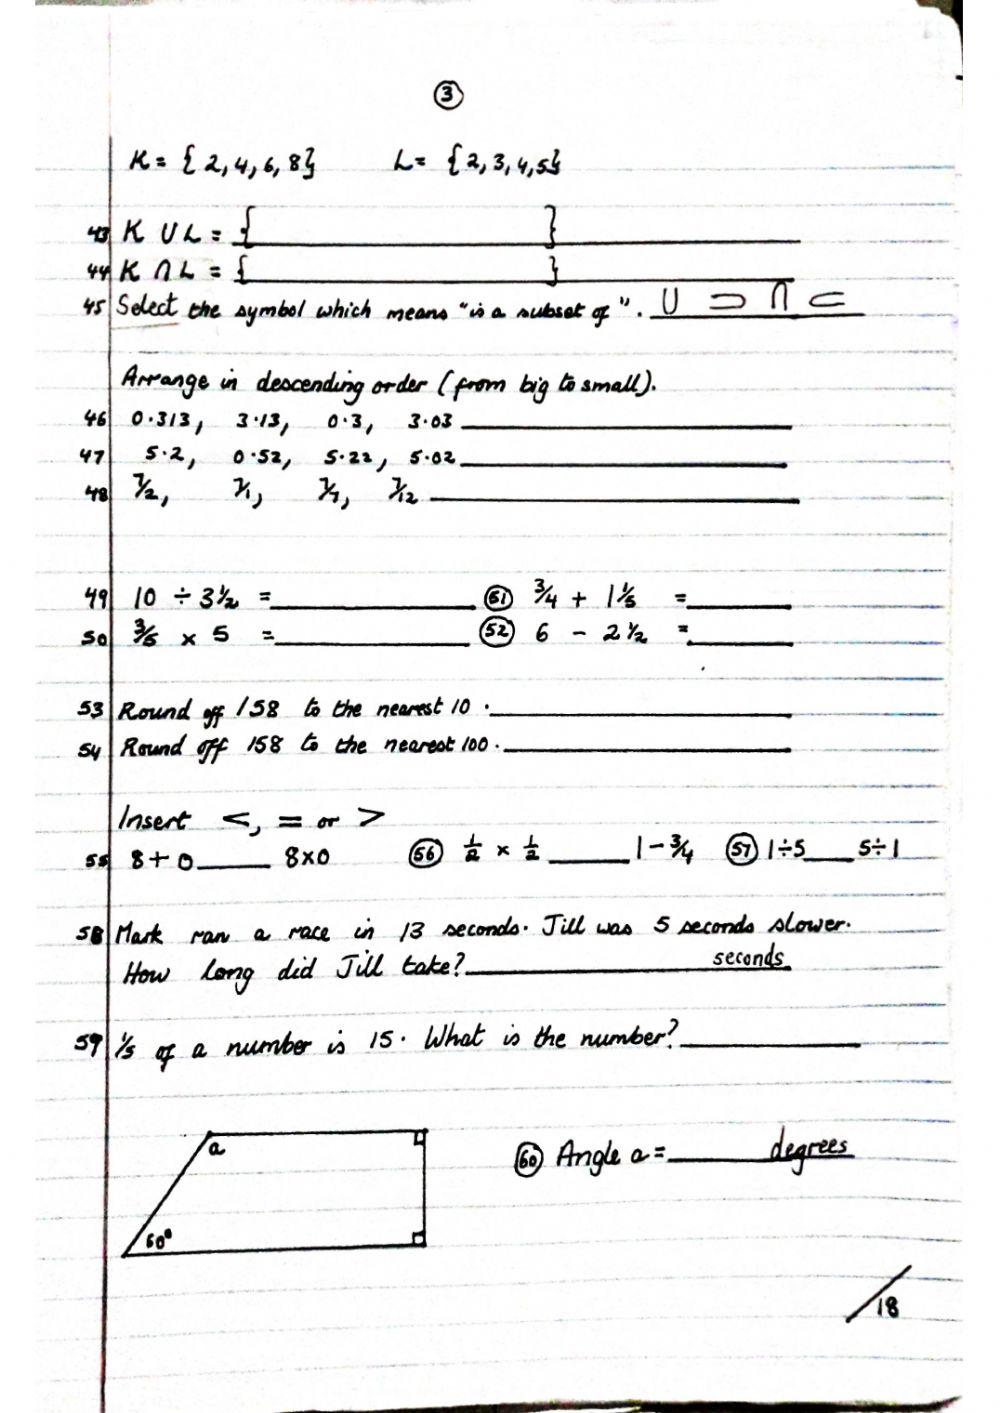 3
K = { 2, 4, 6, 8 } L = { 2, 3, 4, 5 }
43 K ∪ L = { }
44 K ∩ L = { }
45 Select the symbol which means "is a subset of". ∪ ⊃ ∩ ⊂
Arrange in descending order (from big to small).
46 0·313, 3·13, 0·3, 3·03
47 5·2, 0·52, 5·22, 5·02
48 7/2, 7/1, 7/7, 7/12
49 10 ÷ 3½ = 51 ¾ + 1⅕ =
50 ⅗ × 5 = 52 6 - 2½ =
53 Round off 158 to the nearest 10.
54 Round off 158 to the nearest 100.
Insert <, = or >
55 8+0 8×0 56 ½ × ½ 1-¾ 57 1÷5 5÷1
58 Mark ran a race in 13 seconds. Jill was 5 seconds slower.
How long did Jill take? seconds
59 ⅕ of a number is 15. What is the number?
a
60 Angle a = degrees
60°
/18